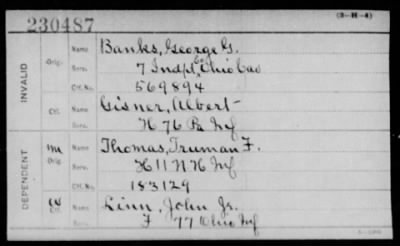 230487
(3-H-4)
INVALID
Orig.
Name Banks, George G.
Serv. 7 Indpt Co Ohio Cav
Ctf. No. 569894
Ctf.
Name Gisner, Albert
Serv. H 76 Pa Inf
DEPENDENT
M
Orig.
Name Thomas, Truman F.
Serv. H 11 N H Inf
Ctf. No. 183129
W
Ctf.
Name Linn, John Jr.
Serv. F 77 Ohio Inf